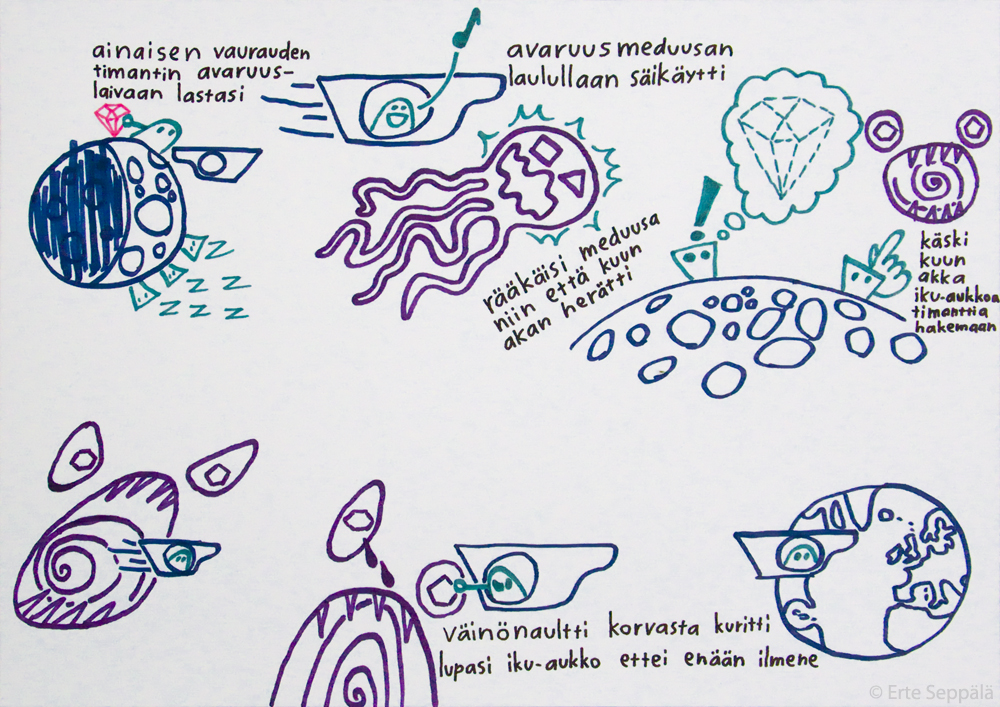 ainaisen vaurauden
timantin avaruus-
laivaan lastasi
avaruusmeduusan
laulullaan säikäytti
z z
z z z
z z z
rääkäisi meduusa
niin että kuun
akan herätti
!
käski
kuun
akka
iku-aukkoa
timanttia
hakemaan
väinönaultti korvasta kuritti
lupasi iku-aukko ettei enään ilmene
© Erte Seppälä